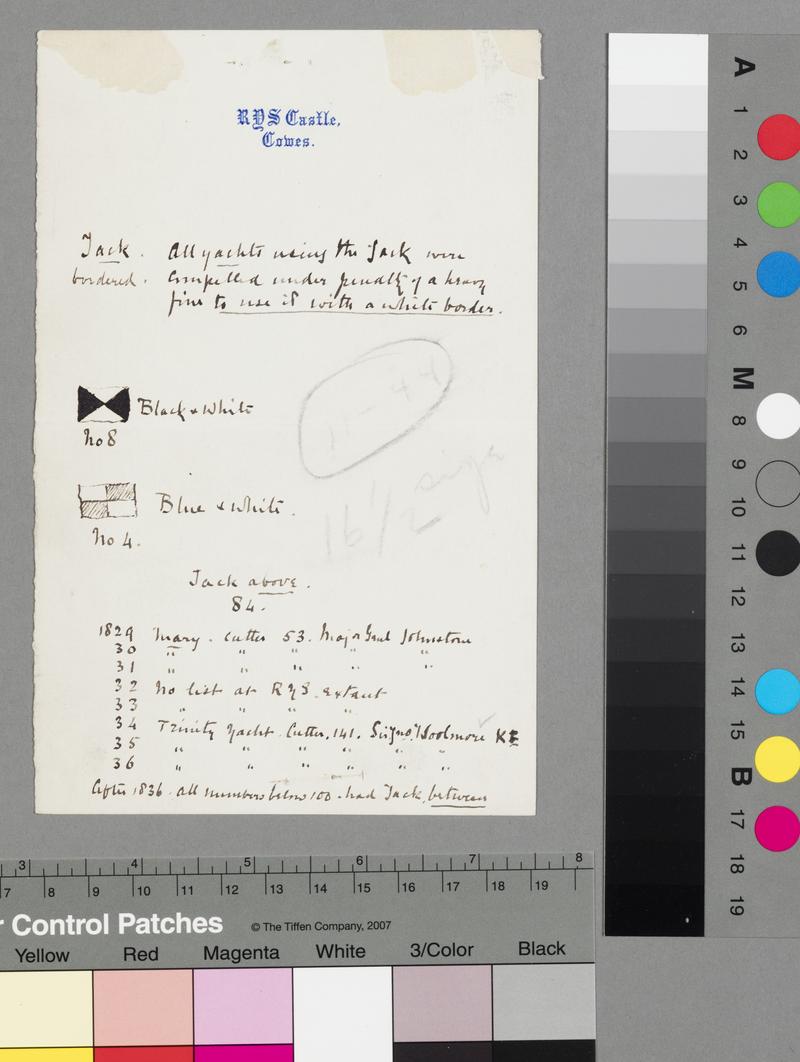 RYS Castle,
Cowes.
Jack. All yachts using the Jack were
bordered. Compelled under penalty of a heavy
fine to use it with a white border.
Black & White
No 8
Blue & White.
No 4.
16 1/2 size
Jack above.
84.
1829 Mary. Cutter 53. Major Genl Johnstone
30 " " " " "
31 " " " " "
32 No list at RYS. extant
33 " " " "
34 Trinity Yacht. Cutter, 141. Sir Jno. Woolmore KE
35 " " " " " "
36 " " " " " "
After 1836. all numbers below 100. had Jack, between
3 4 5 6 7 8
7 8 9 10 11 12 13 14 15 16 17 18 19
r Control Patches © The Tiffen Company, 2007
Yellow Red Magenta White 3/Color Black
A
1
2
3
4
5
6
M
8
9
10
11
12
13
14
15
B
17
18
19